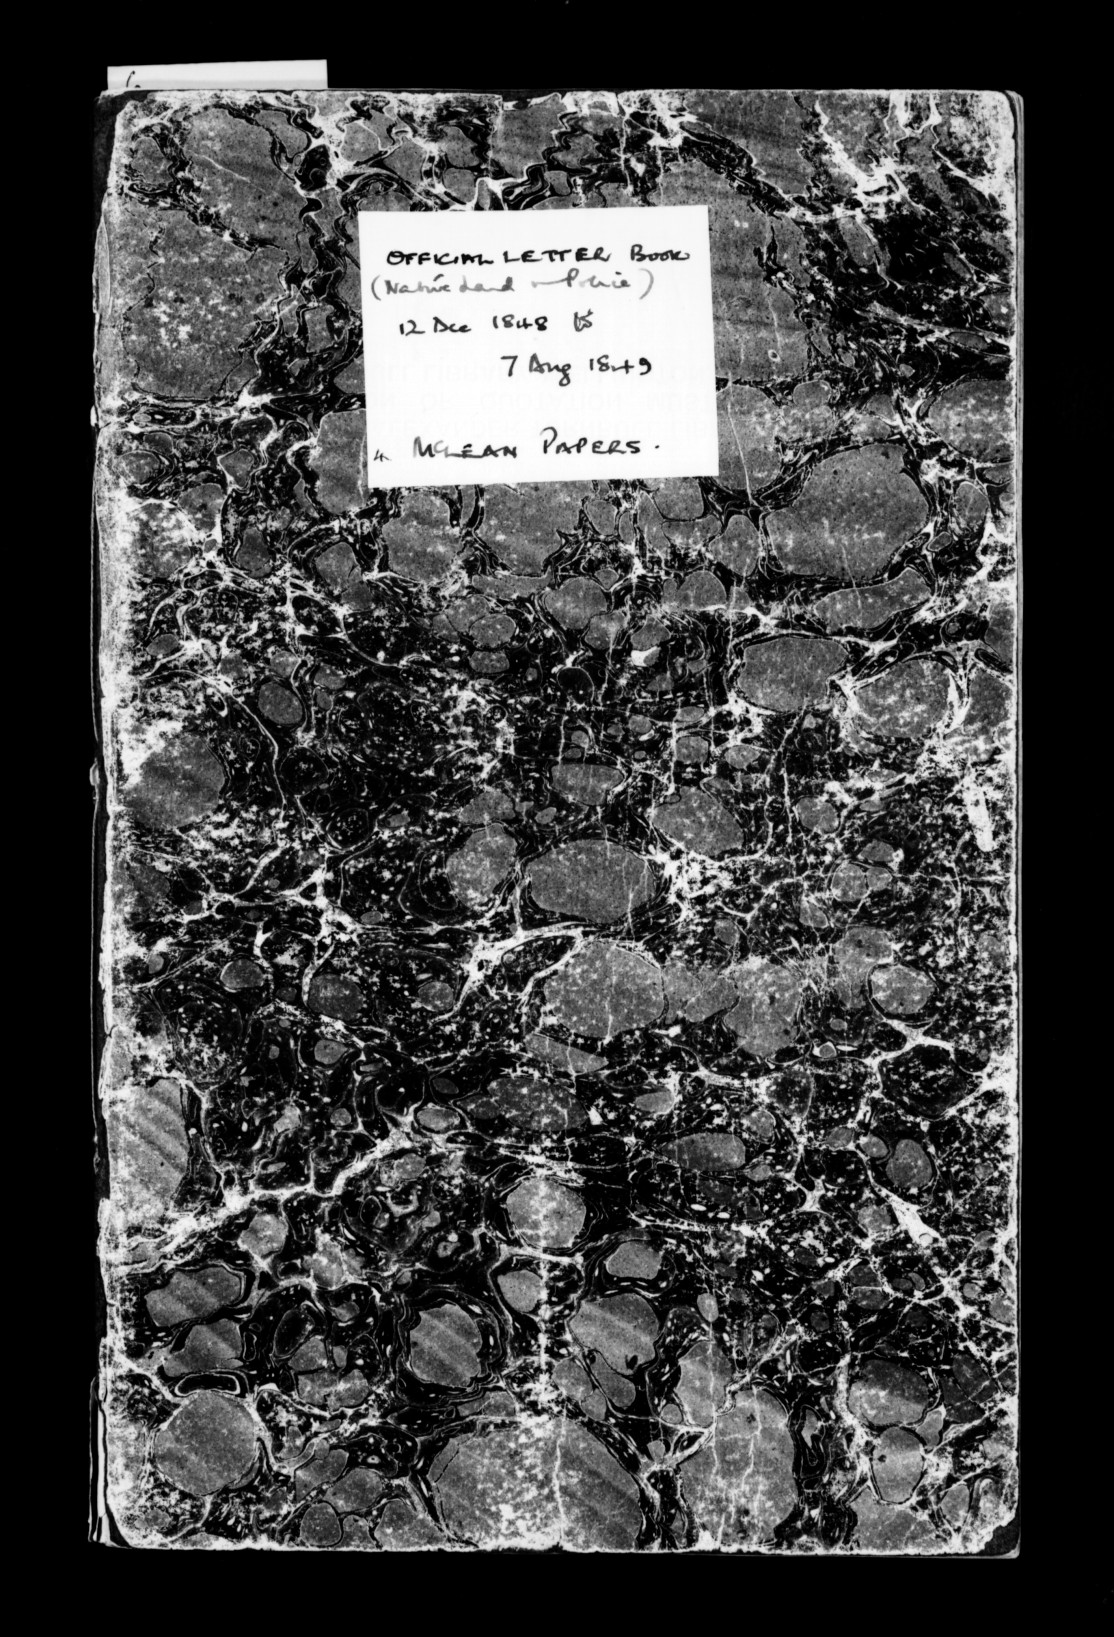 OFFICIAL LETTER BOOK
(Native Land & Police)
12 Dec 1848 to
7 Aug 1849
4. McLEAN PAPERS.